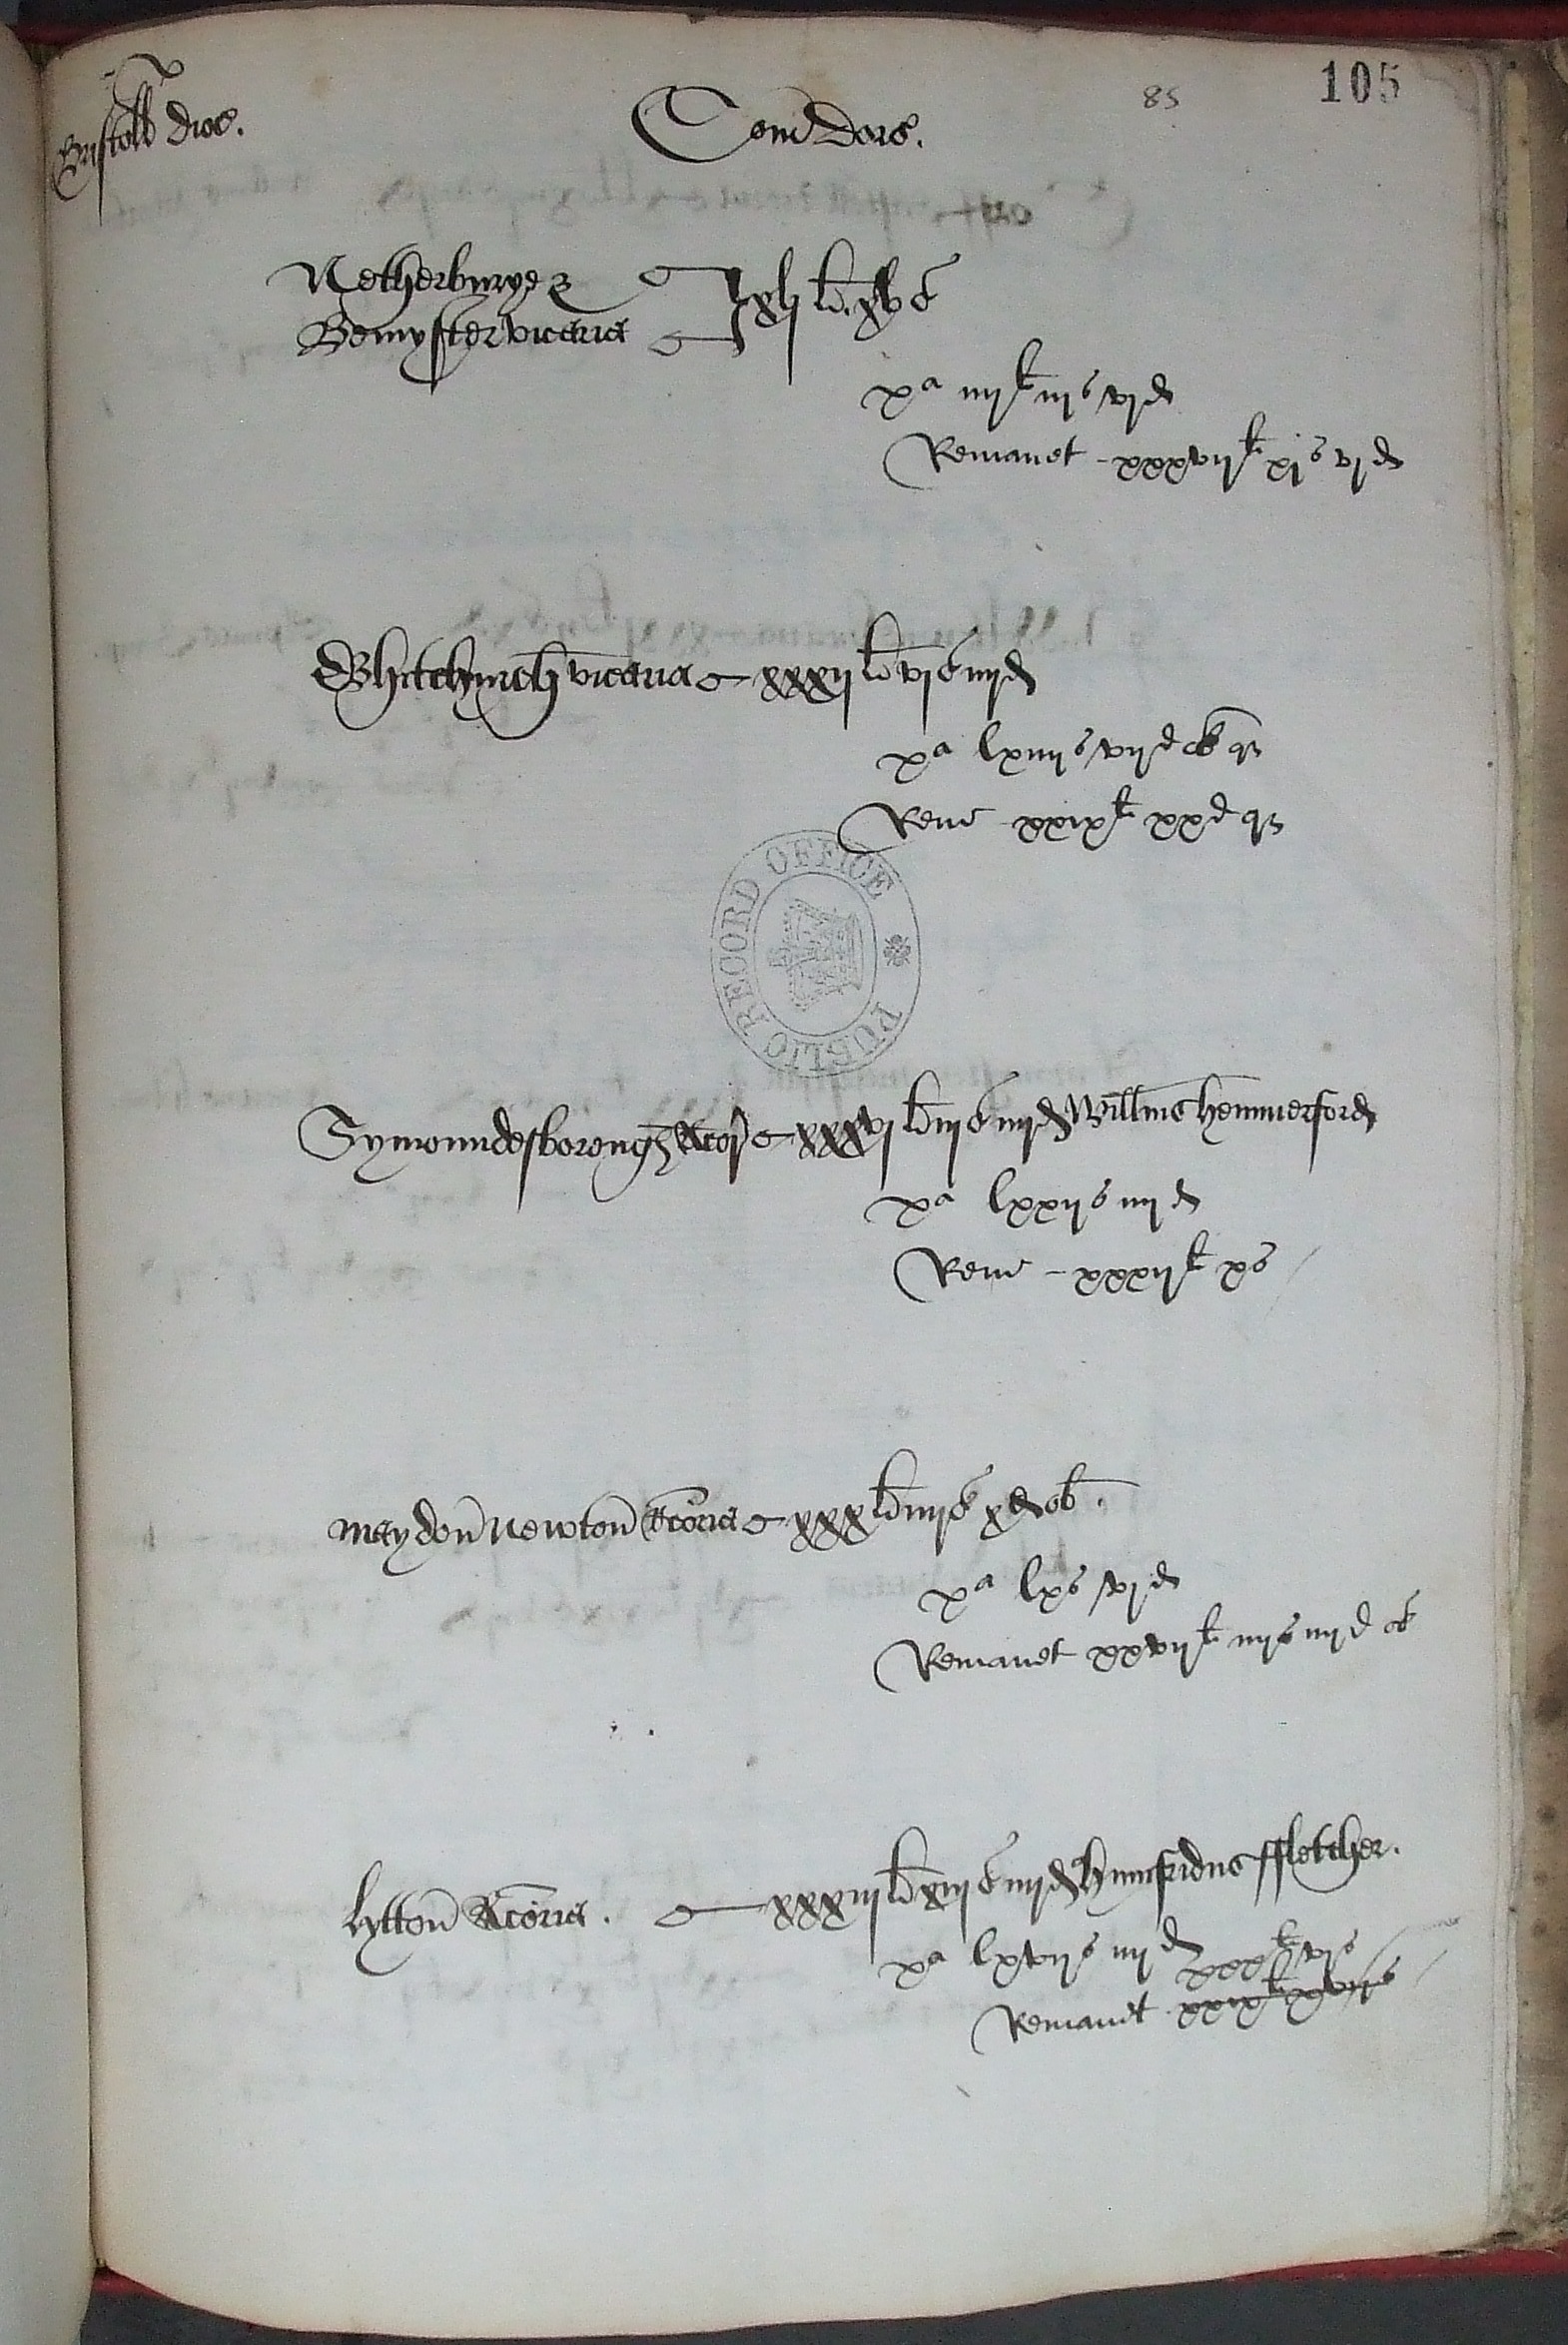 105
85
Bristoll dioc.
Com Dors.
Netherburye &
Bemyster vicaria
xlj li. xv s
xa iiij li iij s vj d
Remanet - xxxvij li xj s vj d
Whitchurch vicaria xxxij li vj s iiij d
xa lxiiij s vij d ob q
Rem xxix li xx d q
PUBLIC RECORD OFFICE
Symonndesborough Rcorj xxxvj li iij s iiij d Willms hemmerford
xa lxxij s iiij d
Rem - xxxij li x s
maydon newton Rcoria xxx li iiij s x d ob.
xa lx s vj d
Remanet xxvij li iiij s iiij d ob
lytton Rcoria. xxxiij li xiij s iiij d humfridus ffletcher.
xa lxvij s iiij d
xxx li vj s
Remanet xxix li xvij s